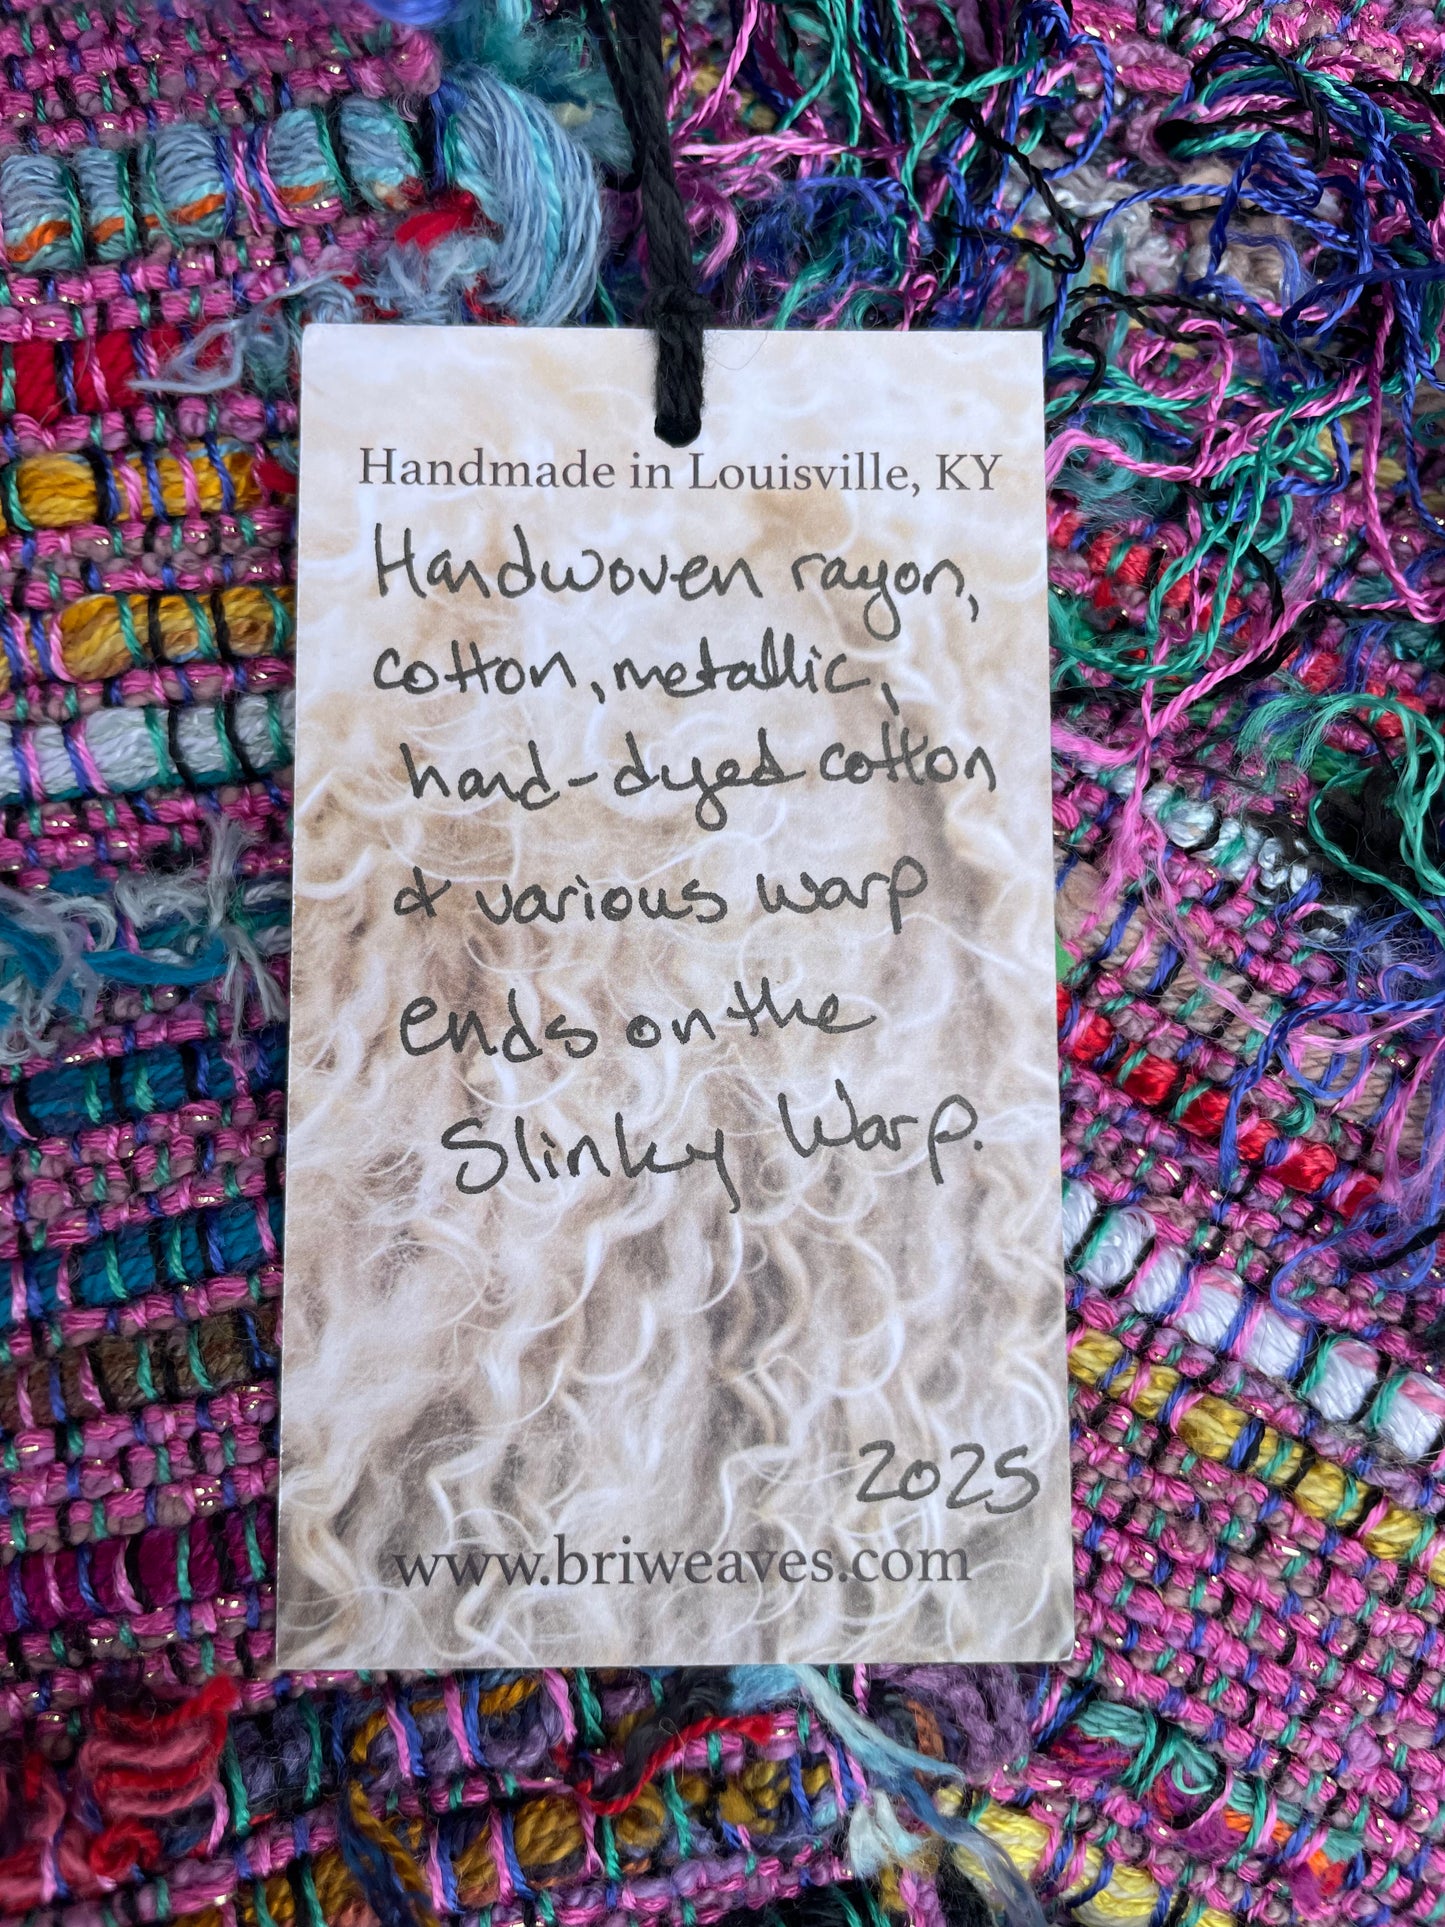 Handmade in Louisville, KY
Handwoven rayon,
cotton, metallic,
hand-dyed cotton
& various warp
ends on the
Slinky Warp.
2025
www.briweaves.com